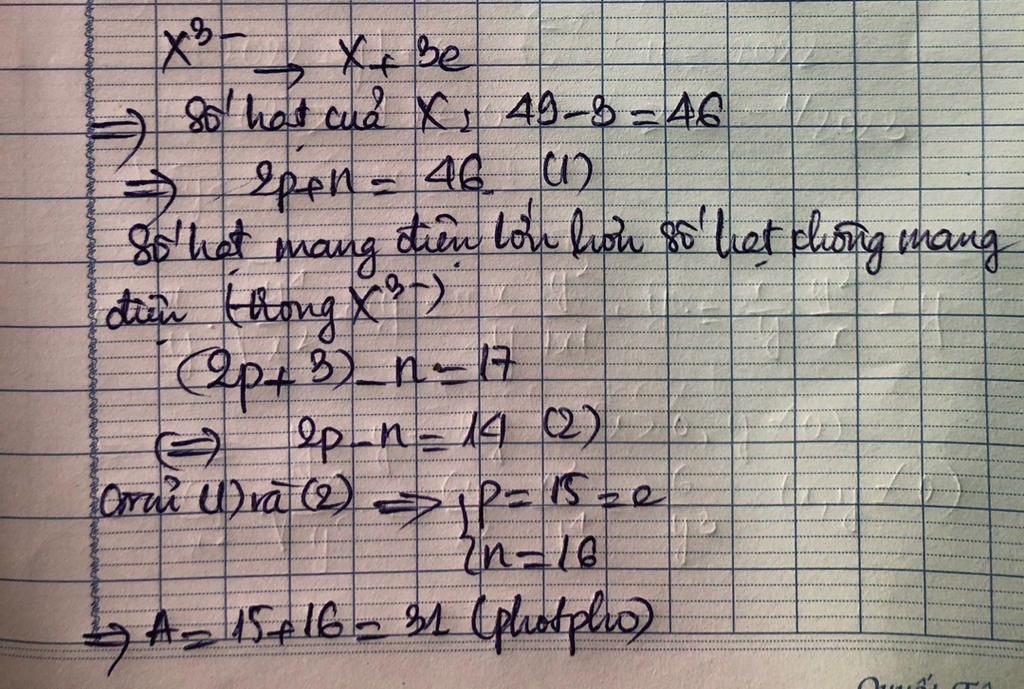 X³⁻ → X + 3e
⇒ Số hạt của X: 49 - 3 = 46
⇒ 2p+n = 46 (1)
Số hạt mang điện lớn hơn số hạt không mang
điện (trong X³⁻)
(2p + 3) - n = 17
(⇒) 2p - n = 14 (2)
(1) và (2) ⇒ { p = 15 = e
n = 16
⇒ A = 15 + 16 = 31 (photpho)